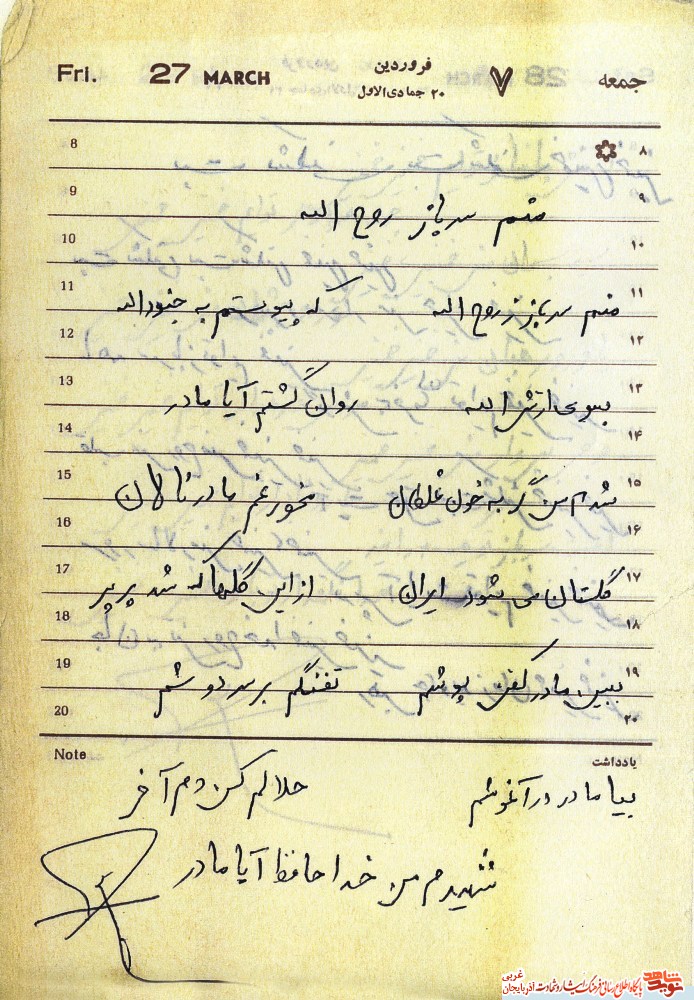 Fri. 27 MARCH فروردین ۷ جمعه
۲۰ جمادی‌الاول
8 ۸
9 ۹
منم سرباز روح الله
10 ۱۰
11 ۱۱
منم سرباز روح الله که پیوستم به جنودالله
12 ۱۲
13 ۱۳
بسوی ارتش الله روان گشتم آیا مادر
14 ۱۴
15 ۱۵
شدم من گر به خون غلطان نخور غم مادر نالان
16 ۱۶
17 ۱۷
گلستان می شود ایران از این گلها که شد پرپر
18 ۱۸
19 ۱۹
ببین مادر کفن پوشم تفنگم بر سر دوشم
20 ۲۰
Note یادداشت
بیا مادر در آغوشم حلالم کن دم آخر
شهیدم من خداحافظ آیا مادر
نوید شاهد
پایگاه اطلاع رسانی فرهنگ ایثار و شهادت آذربایجان غربی